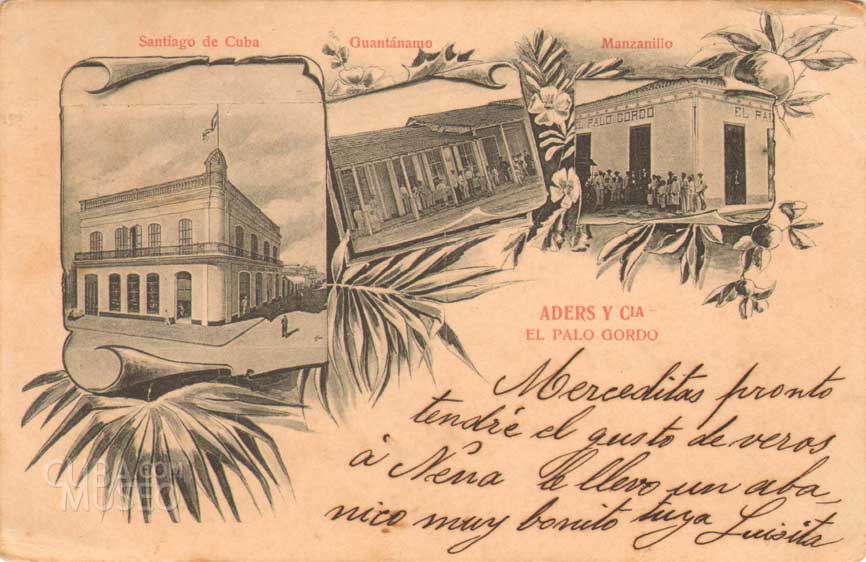 Santiago de Cuba
Guantánamo
Manzanillo
PALO GORDO
EL PAL
ADERS Y CIA
EL PALO GORDO
Merceditas pronto
tendré el gusto de veros
á Nena le llevo un aba-
nico muy bonito tuya Luisita
CUBA.COM
MUSEO